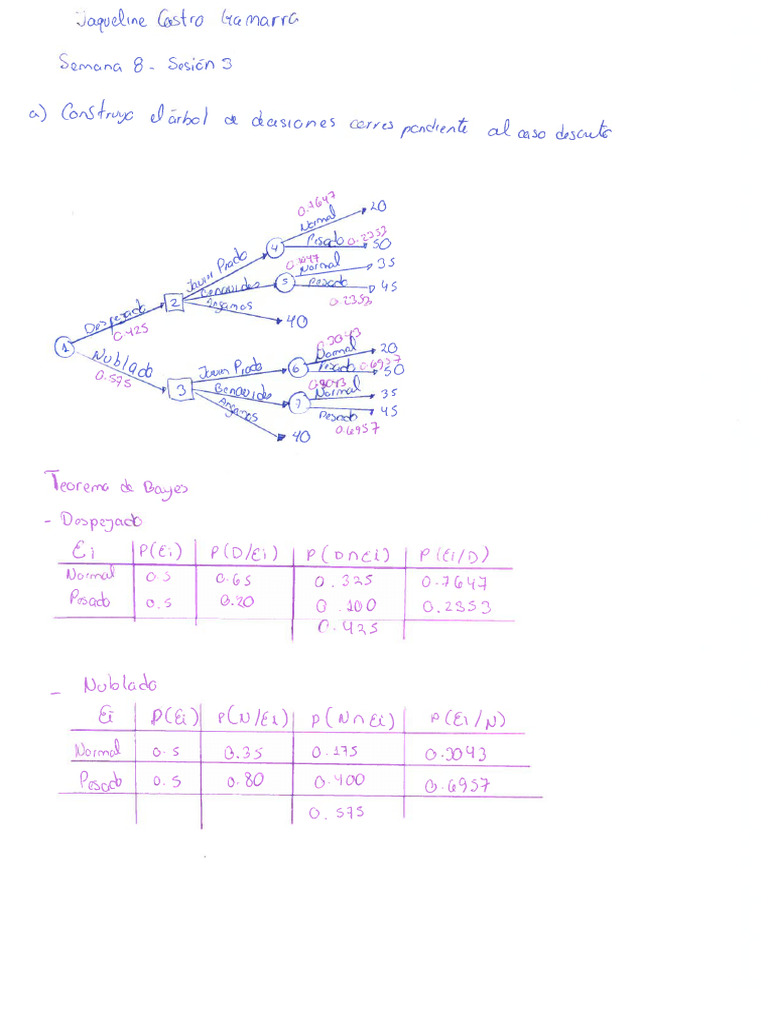 Jaqueline Castro Gamarra
Semana 8 - Sesión 3
a) Construya el árbol de decisiones correspondiente al caso descrito
0.7647
Normal 20
Pesado 0.2353 50
4
Javier Prado
0.7647
Normal 35
5
Pesado 45
0.2353
Benavides
Angamos 40
Despejado 2
0.425
1
Nublado 3
0.575
0.3043
Normal 20
6
Pesado 0.6957 50
Javier Prado
0.3043
Normal 35
Benavides 7
Pesado 45
0.6957
Angamos 40
Teorema de Bayes
- Despejado
Ei P(Ei) P(D/Ei) P(D∩Ei) P(Ei/D)
Normal 0.5 0.65 0.325 0.7647
Pesado 0.5 0.20 0.100 0.2353
0.425
- Nublado
Ei P(Ei) P(N/Ei) P(N∩Ei) P(Ei/N)
Normal 0.5 0.35 0.175 0.3043
Pesado 0.5 0.80 0.400 0.6957
0.575